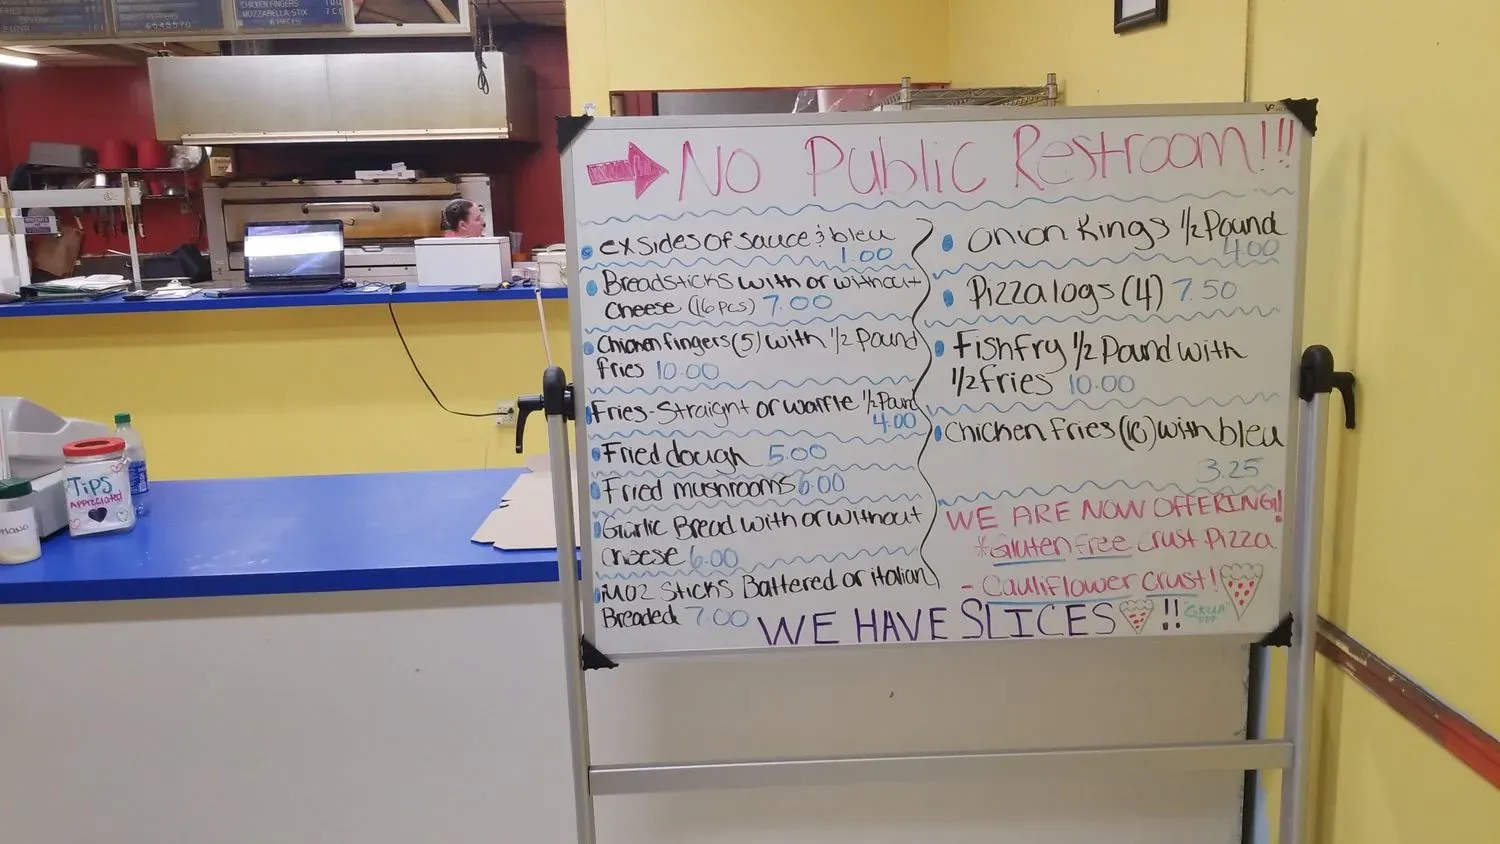 CHICKEN FINGERS
MOZZARELLA STIX
NO Public Restroom!!!
ex sides of sauce & bleu
1.00
Breadsticks with or without
cheese (16 pcs) 7.00
Chicken fingers (5) with 1/2 Pound
fries 10.00
Fries - Straight or waffle 1/2 Pound
4.00
Fried dough 5.00
Fried mushrooms 6.00
Garlic Bread with or without
cheese 6.00
Moz Sticks Battered or italian
Breaded 7.00
Onion Kings 1/2 Pound
4.00
Pizza logs (4) 7.50
Fish fry 1/2 Pound with
1/2 fries 10.00
Chicken Fries (10) with bleu
3.25
WE ARE NOW OFFERING!!
*Gluten free crust Pizza
- Cauliflower crust!
WE HAVE SLICES !!
TiPS
APPreciated